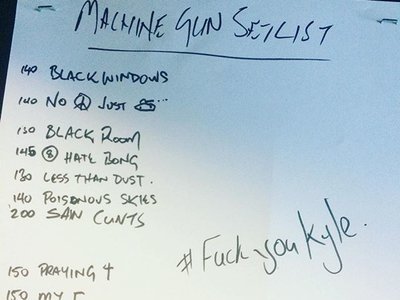 MACHINE GUN SETLIST
140 BLACK WINDOWS
140 NO ☮ JUST ...
130 BLACK ROOM
145 ⑧ HATE BONG
130 LESS THAN DUST.
140 POISONOUS SKIES
200 SAW CUNTS
#Fuck you Kyle.
150 PRAYING 4
150 MY